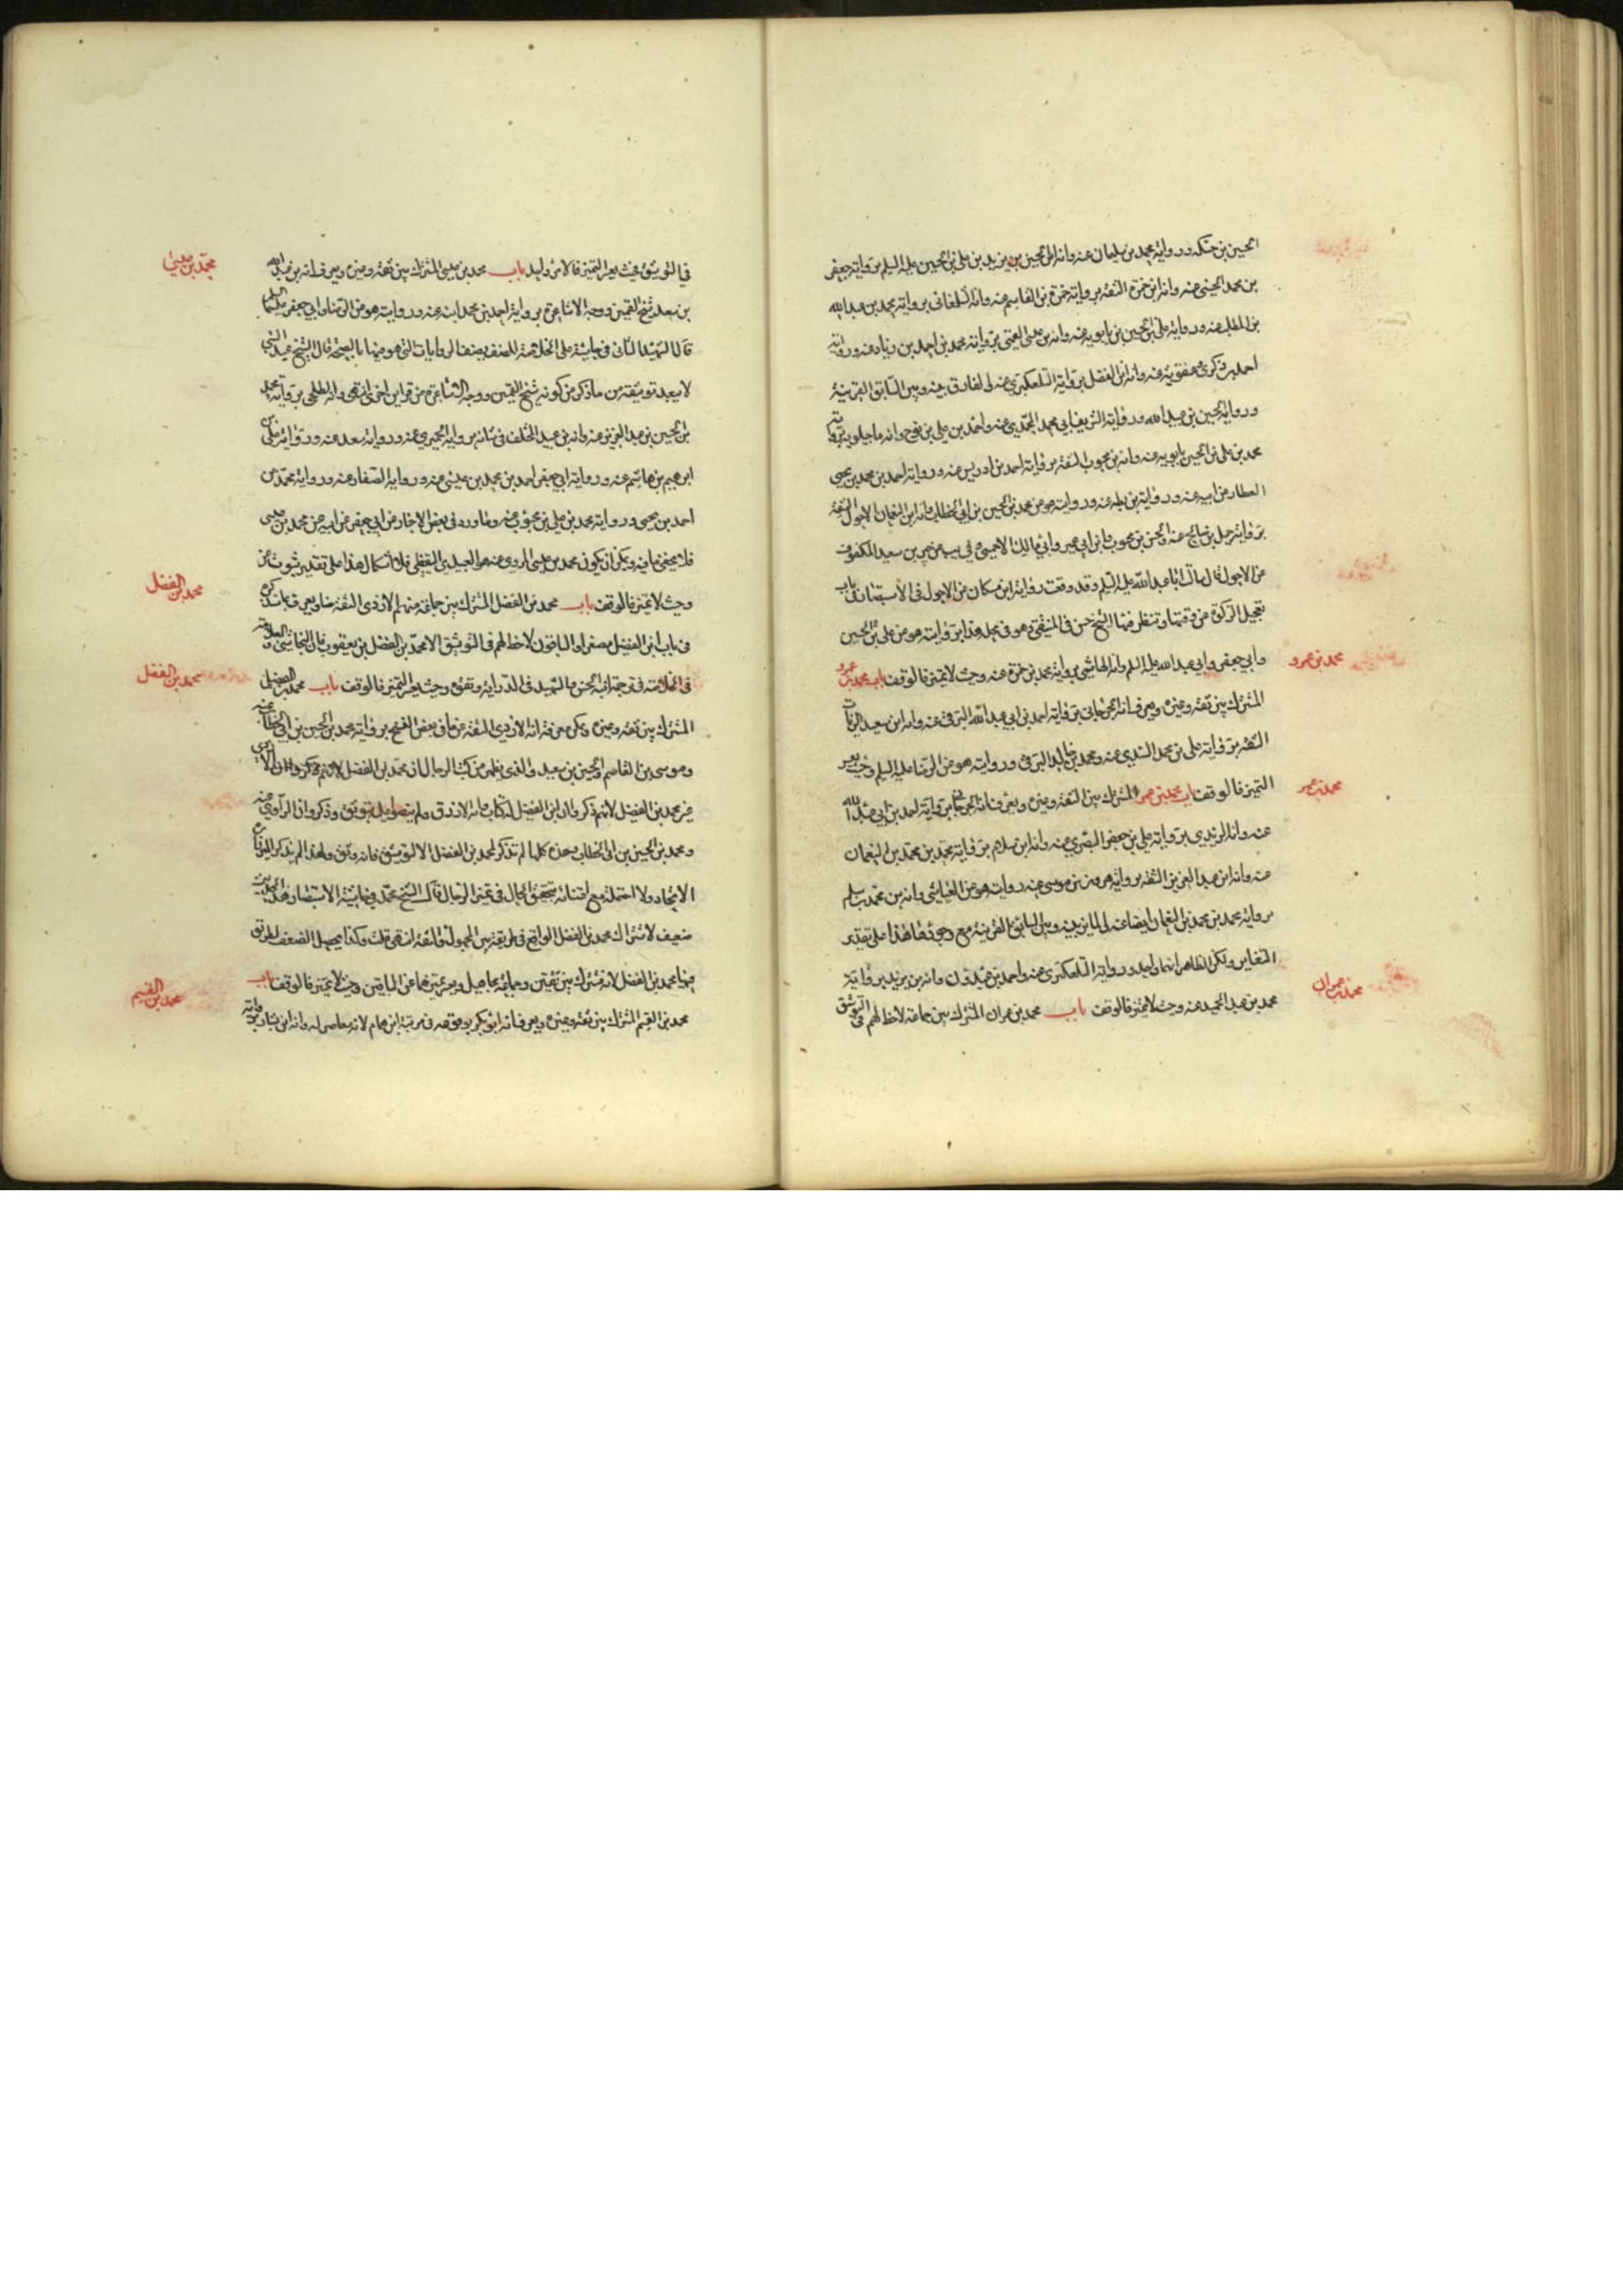 الحسين بن حنكة ورواية محمد بن سليمان عنه وانه ابن الحسين بن يزيد بن علي بن الحسين عليه السلم برواية جعفر
بن محمد الحسيني عنه وانه ابن حمزة الثقة برواية حمزة بن القاسم عنه وانه الشلمغاني برواية محمد بن عبد الله
بن المطلب عنه ورواية علي بن الحسين بن بابويه عنه وانه بن علي القيني برواية محمد بن احمد بن زياد عنه ورواية
احمد بن زكري عنه وانه ابن الفضل برواية التلعكبري عنه لى الفارق بينه وبين السابق القرينة
ورواية الحسين بن عبيد الله ورواية الشريف ابي محمد المحمدي عنه واحمد بن علي بن نوح وانه ماجيلويه برواية
محمد بن علي بن الحسين بابويه عنه وانه بن محبوب الثقة برواية احمد بن ادريس عنه ورواية احمد بن محمد بن يحيى
العطار عن ابيه عنه ورواية بن بطة عنه وروايته هو عن محمد بن الحسين بن ابي الخطاب وانه ابن النعمان الاحول الثقة
برواية جميل بن صالح عنه والحسن بن محبوب وابن ابي عمير وابي مالك الاحمسي وفي عن سعيد المكفوف
عن الاحول قال سالت ابا عبد الله عليه السلم وقد وقعت رواية ابن مسكان عن الاحول في الاستبصار في باب
تعجيل الزكوة عن وقتها وتنظر فيها الشيخ حسن في المنتقى وهو في محله هذا بروايته هو عن علي بن الحسين
وابي جعفر وابي عبد الله عليه السلم وانه الهاشمي برواية محمد بن حمزة عنه وحيث لا تميز فالوقف باب محمد بن عمرو
المشترك بين ثقة وغيره ويعرف انه الجرجاني برواية احمد بن ابي عبد الله البرقي عنه وانه ابن سعيد الزيات
الثقة برواية علي بن محمد السندي عنه ومحمد بن خالد البرقي وروايته هو عن الرضا عليه السلم وحيث يعسر
التميز فالوقف باب محمد بن عمر المشترك بين الثقة وغيره ويعرف انه الجرجاني برواية احمد بن ابي عبد الله
عنه وانه الزيدي برواية علي بن جعفر البصري عنه وانه ابن سلام برواية محمد بن محمد بن النعمان
عنه وانه ابن عبد العزيز الثقة برواية هرون بن موسى عنه وروايته هو عن العياشي وانه بن محمد بن سلم
برواية محمد بن محمد بن النعمان ايضا عنه لى المايز بينه وبين السابق القرينة مع وجودها هذا على تقدير
التغاير ولكن الظاهر انهما واحد ورواية التلعكبري عنه واحمد بن عبدون وانه بن يزيد برواية
محمد بن عبد الحميد عنه وحيث لا تميز فالوقف باب محمد بن عمران المشترك بين جماعة لاحظ لهم في التوثيق
محمد بن عمرو
محمد بن عمر
محمد بن عمران
في التوثيق فحيث يعسر التميز فالامر واحد باب محمد بن عيسى المشترك بين ثقة وغيره ويعرف انه بن عبد الله
بن سعد شيخ القميين ووجه الاشاعرة برواية احمد بن محمد ابنه عنه وروايته هو عن الرضا وابي جعفر عليهما السلم
قال الشهيد الثاني في حاشيته على الخلاصة المصنف يصف الروايات التي هو منها بالصحة قال الشيخ عبد النبي
لا يبعد توثيقه من ما ذكر من كونه شيخ القميين ووجه الاشاعرة من قراين اخرى انتهى وانه الطلحي برواية محمد
بن الحسين بن عبد العزيز عنه وانه بن عبيد المختلف في شانه برواية الحميري عنه ورواية سعد عنه ورواية علي بن
ابرهيم بن هاشم عنه ورواية ابي جعفر احمد بن محمد بن عيسى عنه ورواية الصفار عنه ورواية محمد بن
احمد بن يحيى ورواية محمد بن علي بن محبوب عنه وما ورد في بعض الاخبار عن ابي جعفر عن ابيه عن محمد بن عيسى
فلا يخفى ما فيه ويمكن ان يكون محمد بن عيسى المروي عنه هو العبيدي اليقطيني فلا اشكال هذا على تقدير ثبوت
وحيث لا تميز فالوقف باب محمد بن الفضل المشترك بين جماعة منهم الازدي الثقة هنا ويعرف بما سنذكره
في باب ابن الفضيل مصغرا والباقون لاحظ لهم في التوثيق الا محمد بن الفضل بن يعقوب فان النجاشي والعلامة
في الخلاصة في ترجمة ابنه الحسن والشهيد في الدراية وثقوه وحيث يعسر التميز فالوقف باب محمد بن الفضيل
المشترك بين ثقة وغيره ويمكن معرفة انه الازدي الثقة عن ما في بعض النسخ برواية محمد بن الحسين بن ابي الخطاب عنه
وموسى بن القاسم والحسين بن سعيد والذي يظهر من كتب الرجال ان محمد بن الفضل الازدي
غير محمد بن الفضيل لانهم ذكروا ان ابن الفضيل له كتاب وانه الازرق ولم يصفوه بتوثيق وذكروا ان الراوي عنه
ومحمد بن الحسين بن ابي الخطاب وهذه كلها لم تذكر لمحمد بن الفضل الا التوثيق فانه وثق ولهذا لم يذكر الميرزا
الاتحاد ولا احتمله مع اعتنائه بتحقيق الحال في تميز الرجال قال الشيخ محمد في حاشية الاستبصار هذا الحديث
ضعيف لاشتراك محمد بن الفضل الواقع في طريقه بين المجهول والثقة انتهى قلت وكذا يحصل الضعف بطريق
فيها محمد بن الفضل لانه مشترك بين ثقتين وجماعة مجاهيل ويعسر تميزهما عن الباقين وحيث لا تميز فالوقف باب
محمد بن القسم المشترك بين ثقة وغيره ويعرف انه ابو بكر بوقوعه في مرتبة ابن همام لانه معاصر له وانه ابن بشار برواية
محمد بن عيسى
محمد بن الفضل
محمد بن الفضل
محمد بن القسم